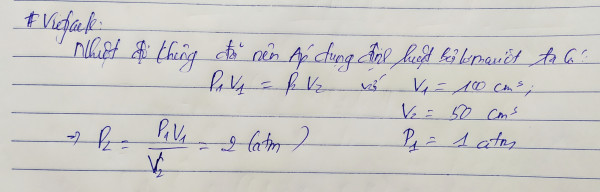 # Vietjack:
Nhiệt độ không đổi nên Áp dụng định luật Bôi lơ mariốt ta có:
P₁V₁ = P₂V₂ với V₁ = 100 cm³;
V₂ = 50 cm³
→ P₂ = P₁V₁ / V₂ = 2 (atm) P₁ = 1 atm